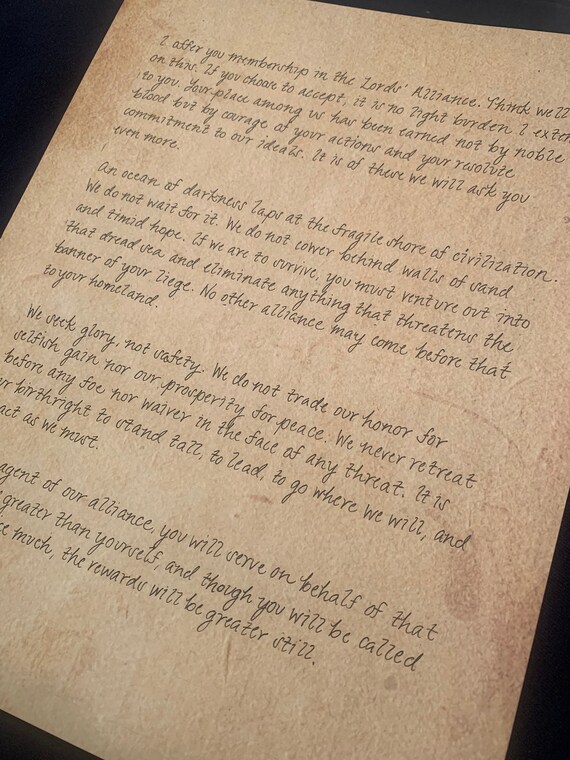 I offer you membership in the Lords' Alliance. Think well
on this. If you choose to accept, it is no light burden I exten
to you. Your place among us has been earned not by noble
blood but by courage of your actions and your resolute
commitment to our ideals. It is of these we will ask you
even more.
An ocean of darkness laps at the fragile shore of civilization.
We do not wait for it. We do not cower behind walls of sand
and timid hope. If we are to survive, you must venture out into
that dread sea and eliminate anything that threatens the
banner of your liege. No other alliance may come before that
to your homeland.
We seek glory, not safety. We do not trade our honor for
selfish gain nor our prosperity for peace. We never retreat
before any foe nor waiver in the face of any threat. It is
ur birthright to stand tall, to lead, to go where we will, and
act as we must.
agent of our alliance, you will serve on behalf of that
greater than yourself, and though you will be called
much, the rewards will be greater still.